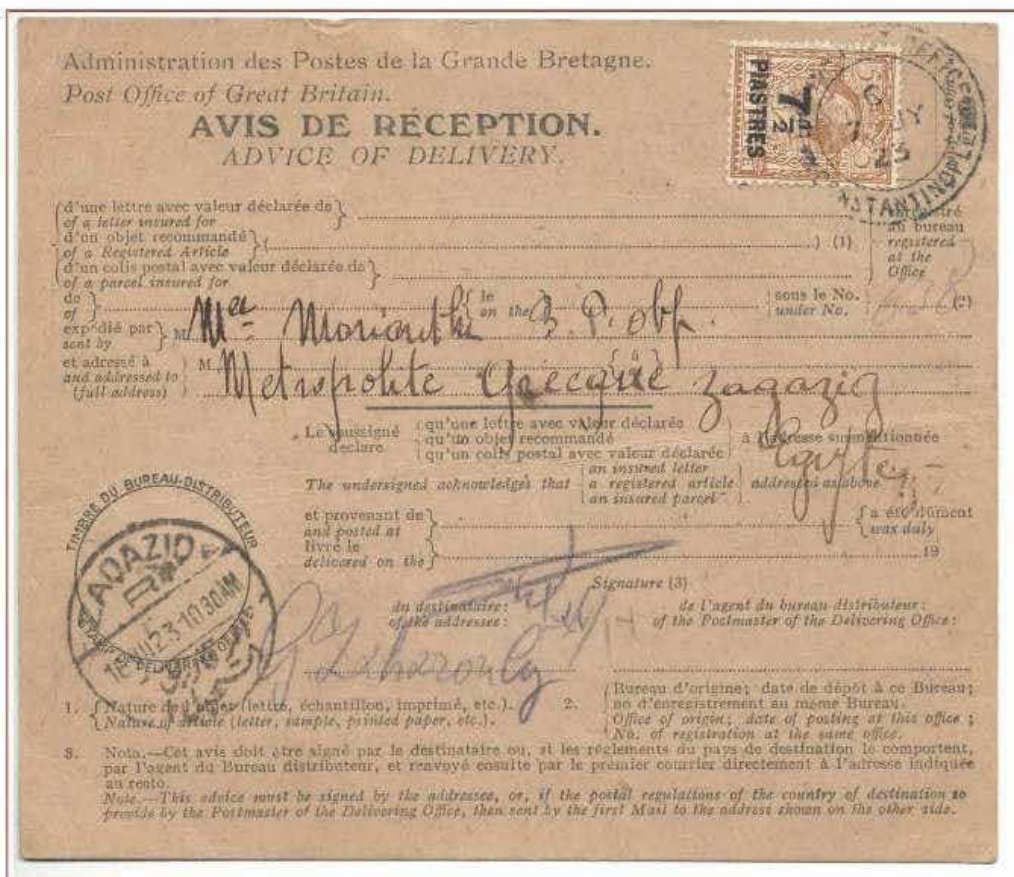 Administration des Postes de la Grande Bretagne.
Post Office of Great Britain.
AVIS DE RÉCEPTION.
ADVICE OF DELIVERY.
7½
PIASTRES
CONSTANTINOPLE
23
d'une lettre avec valeur déclarée de
of a letter insured for
d'un objet recommandé
of a Registered Article ( ) (1)
d'un colis postal avec valeur déclarée de
of a parcel insured for
enregistré
au bureau
registered
at the
Office
de
of
le
on the
sous le No.
under No. (2)
expédié par
sent by
M
et adressé à
and addressed to
(full address)
M
Metropolite Grecque Zagazig
Egypte
Le soussigné
declare
qu'une lettre avec valeur déclarée
qu'un objet recommandé
qu'un colis postal avec valeur déclarée
à l'adresse susmentionnée
The undersigned acknowledges that
an insured letter
a registered article
an insured parcel
addressed as above
et provenant de
and posted at
livré le
delivered on the
a été dûment
was duly
19
TIMBRE DU BUREAU-DISTRIBUTEUR
ZAGAZIG
R
23.10.30AM
STAMP OF DELIVERING OFFICE
Signature (3)
du destinataire:
of the addressee:
de l'agent du bureau distributeur:
of the Postmaster of the Delivering Office:
1. Nature de l'objet (lettre, échantillon, imprimé, etc.).
Nature of article (letter, sample, printed paper, etc.).
2. Bureau d'origine; date de dépôt à ce Bureau;
no d'enregistrement au même Bureau.
Office of origin; date of posting at this office;
No. of registration at the same office.
3. Nota.—Cet avis doit être signé par le destinataire ou, si les règlements du pays de destination le comportent,
par l'agent du Bureau distributeur, et renvoyé ensuite par le premier courrier directement à l'adresse indiquée
au recto.
Note.—This advice must be signed by the addressee, or, if the postal regulations of the country of destination so
provide by the Postmaster of the Delivering Office, then sent by the first Mail to the address shown on the other side.